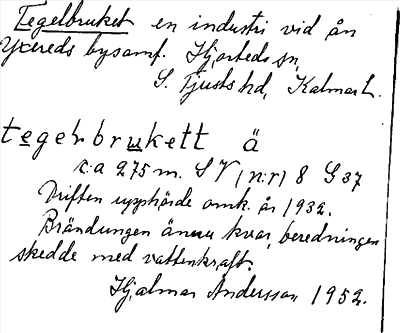 Tegelbruket en industri vid ån
Yxereds bysamf. Hjorteds sn,
S. Tjusts hd, Kalmar l.
tegelbrukett ä
c:a 275 m. SV (n:r) 8 G 37
Driften upphörde omk. år 1932.
Brändungen ännu kvar, beredningen
skedde med vattenkraft.
Hjalmar Andersson 1952.